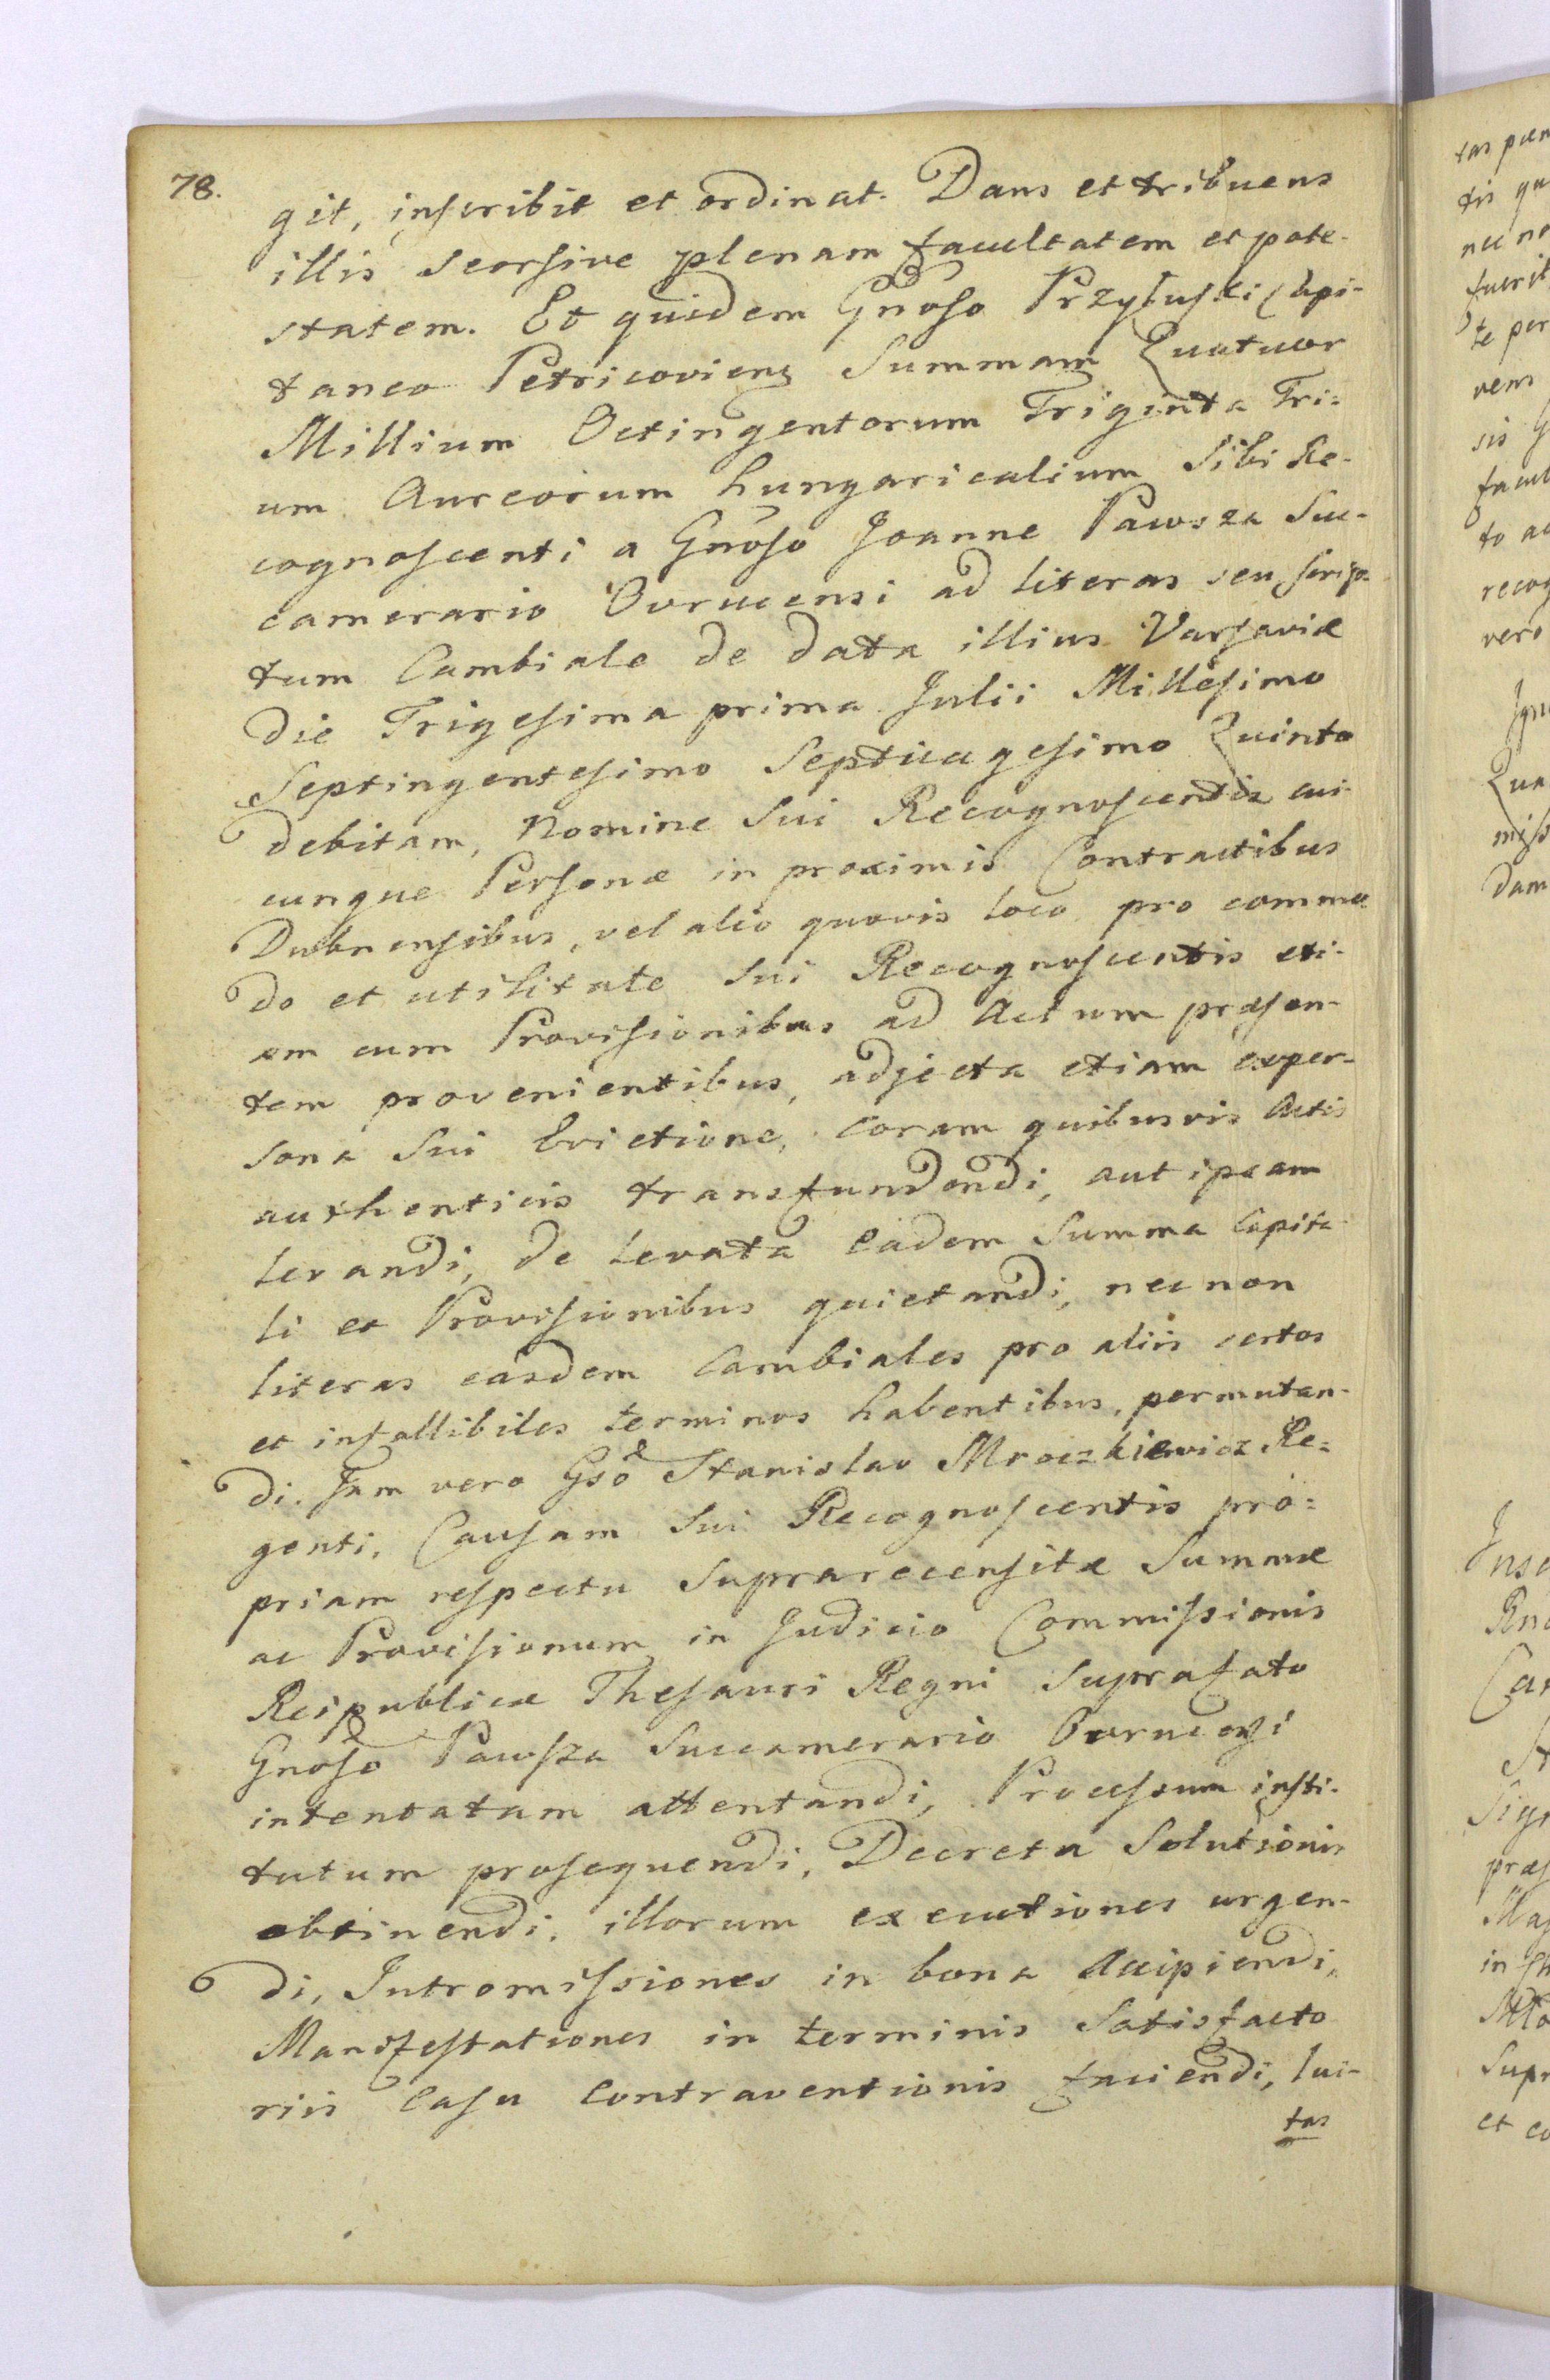 78.
git, inscribit et ordinat. Dans et tribuens
illis seorsive plenam facultatem et pote-
statem. Et quidem Gnoso Przyłuski Capi-
taneo Petricoviens Summam Quatuor
Millium Octingentorum Triginta Tri=
um Aureorum hungaricalium Sibi Re-
cognoscenti a Gnoso Joanne Pawsza Suc-
camerario Ovrucensi ad literas seu scrip-
tum Cambiale de data illius Varsaviæ
die Trigesima prima Julii Millesimo
Septingentesimo Septuagesimo Quinto
debitam, Nomine Sui Recognoscentis cui-
cunque Personæ in proximis Contractibus
Dubnensibus, vel alio quovis loco pro commo
do et utilitate Sui Recognoscentis eti-
am cum Provisionibus ad Actum præsen-
tem provenientibus, adjecta etiam exper-
sona Sui Evictione, coram quibusvis Actis
authenticis transfundendi, aut ipsam
levandi, de levata eadem Summa Capita-
li et Provisionibus quietandi, nec non
literas easdem Cambiales pro aliis certos
et infallibiles terminos habentibus, permutan-
di. Jam vero Gso Stanislao Mroczkiewicz Re=
genti, Causam Sui Recognoscentis pro=
priam respectu Suprarecensitæ Summæ
ac Provisionum in Judicio Commissionis
Reipublicæ Thesauri Regni Suprafato
Gnoso Pawsza Succamerario Ovrucensi
intentatam attentandi, Processum insti-
tutum prosequendi, Decreta Solutionis
obtinendi, illorum executiones urgen-
di, Intromissiones in bona accipiendi,
Manifestationes in terminis Satisfacto
riis Casu Contraventionis faciendi, lui-
tas
tis
nec no
fuerit
te per
vem
sis
facul
to ac
recog
vero
Qua
miss
dam
Car
præs
Supr
et co